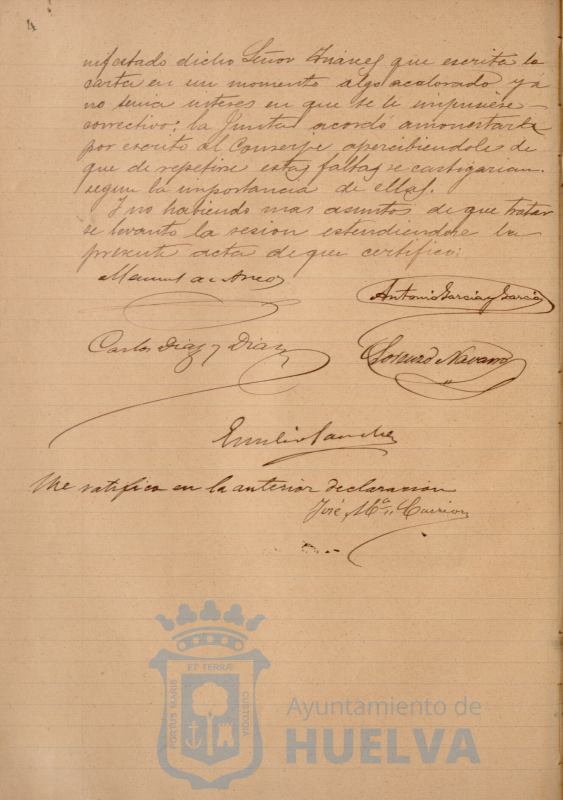 4
nifestado dicho Señor Suarez que escrita la
carta en un momento algo acalorado ya
no tenia interes en que se le impusiese
correctivo; la Junta acordó amonestarle
por escrito al Conserje apercibiendole de
que de repetirse estas faltas se castigarian
segun la importancia de ellas.
Y no habiendo mas asuntos de que tratar
se levantó la sesion estendiendose la
presente acta de que certifico:
Manuel de
Antonio Garcia y Garcia
Carlos Diaz y Diaz
Lorenzo Navarro
Emilio Sanchez
Me ratifico en la anterior declaracion
José Mª Carrion
ET TERRÆ
PORTUS MARIS
CUSTODIA
Ayuntamiento de
HUELVA